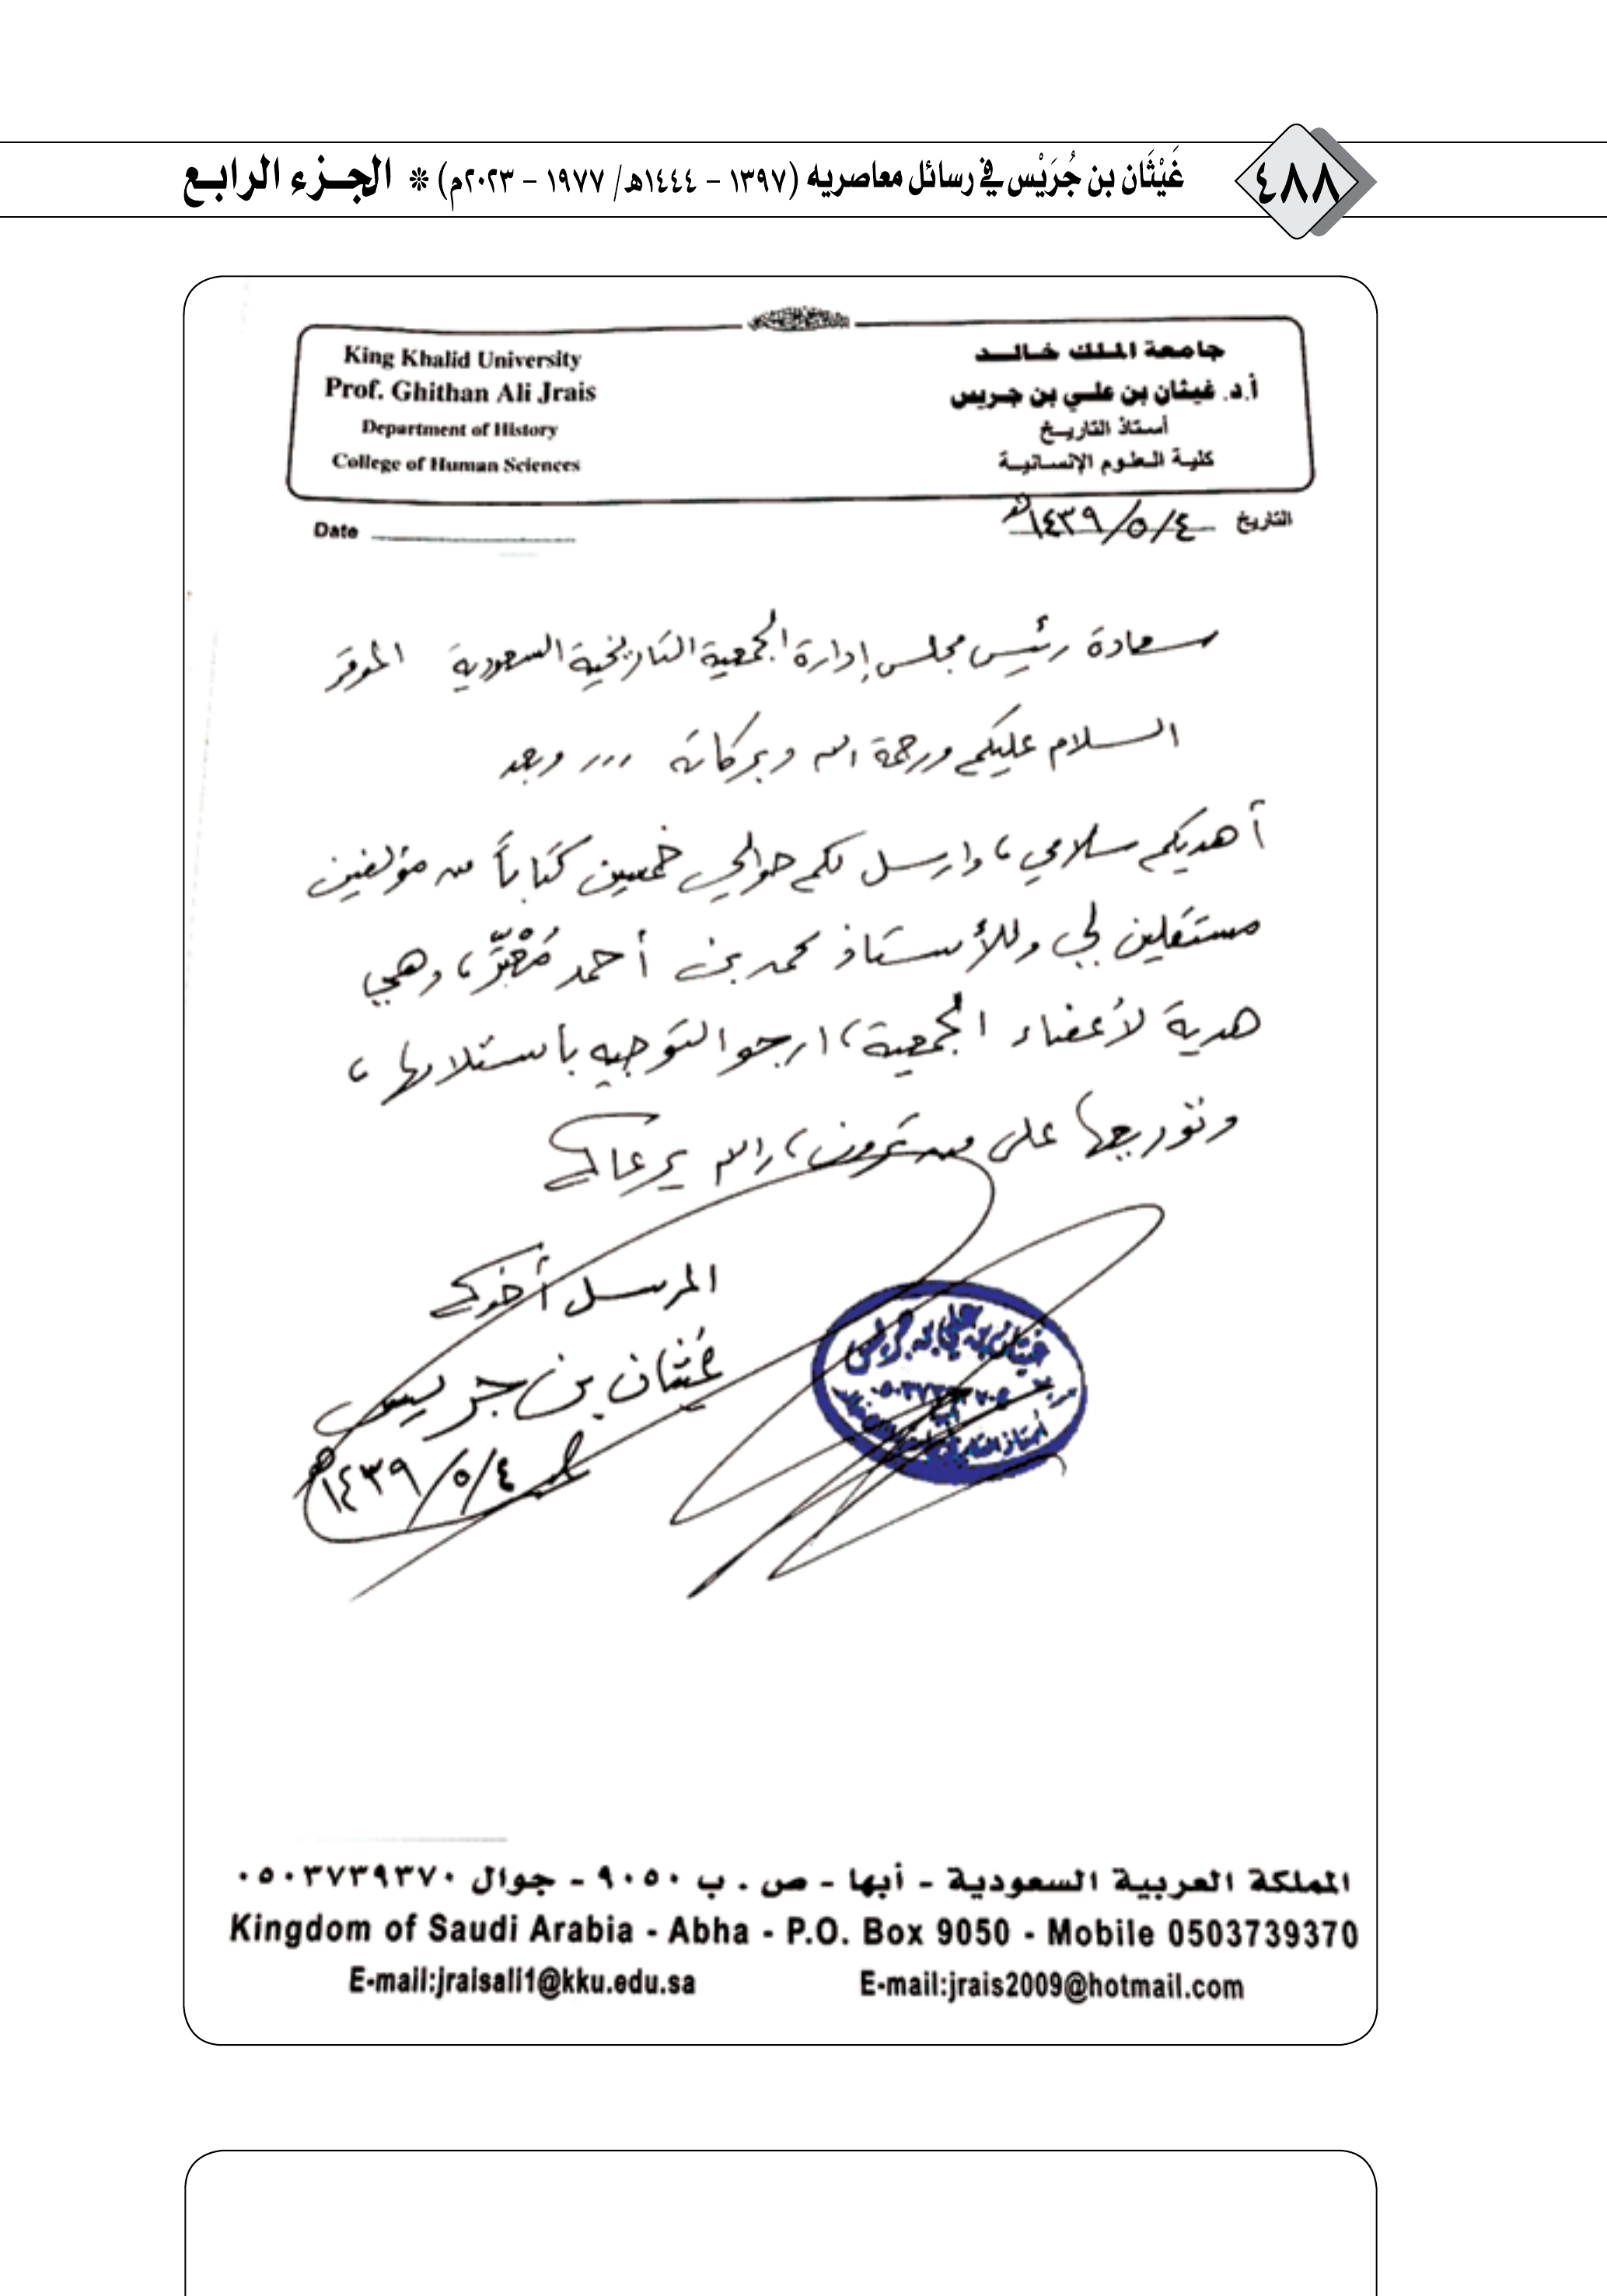 ٤٨٨
غَيْثَان بن جُرَيْس في رسائل معاصريه (١٣٩٧ – ١٤٤٤هـ/ ١٩٧٧ – ٢٠٢٣م) * الجزء الرابع
جامعة الملك خالد
أ.د. غيثان بن علي بن جريس
أستاذ التاريخ
كلية العلوم الإنسانية
King Khalid University
Prof. Ghithan Ali Jrais
Department of History
College of Human Sciences
التاريخ ٤/٥/١٤٣٩هـ
Date
سعادة رئيس مجلس إدارة الجمعية التاريخية السعودية الموقر
السلام عليكم ورحمة الله وبركاته ... وبعد
أهديكم سلامي، وارسل لكم حوالي خمسين كتاباً من مؤلفين
مستقلين لي وللأستاذ محمد بن أحمد مُعْبِّر، وهي
هدية لأعضاء الجمعية، ارجو التوجيه باستلامها،
وتوزيعها على من ترون، والله يرعاكم
المرسل أخوكم
غيثان بن جريس
٤/٥/١٤٣٩هـ
غيثان بن علي بن جريس
أستاذ التاريخ
المملكة العربية السعودية - أبها - ص . ب ٩٠٥٠ - جوال ٠٥٠٣٧٣٩٣٧٠
Kingdom of Saudi Arabia - Abha - P.O. Box 9050 - Mobile 0503739370
E-mail:jraisali1@kku.edu.sa E-mail:jrais2009@hotmail.com